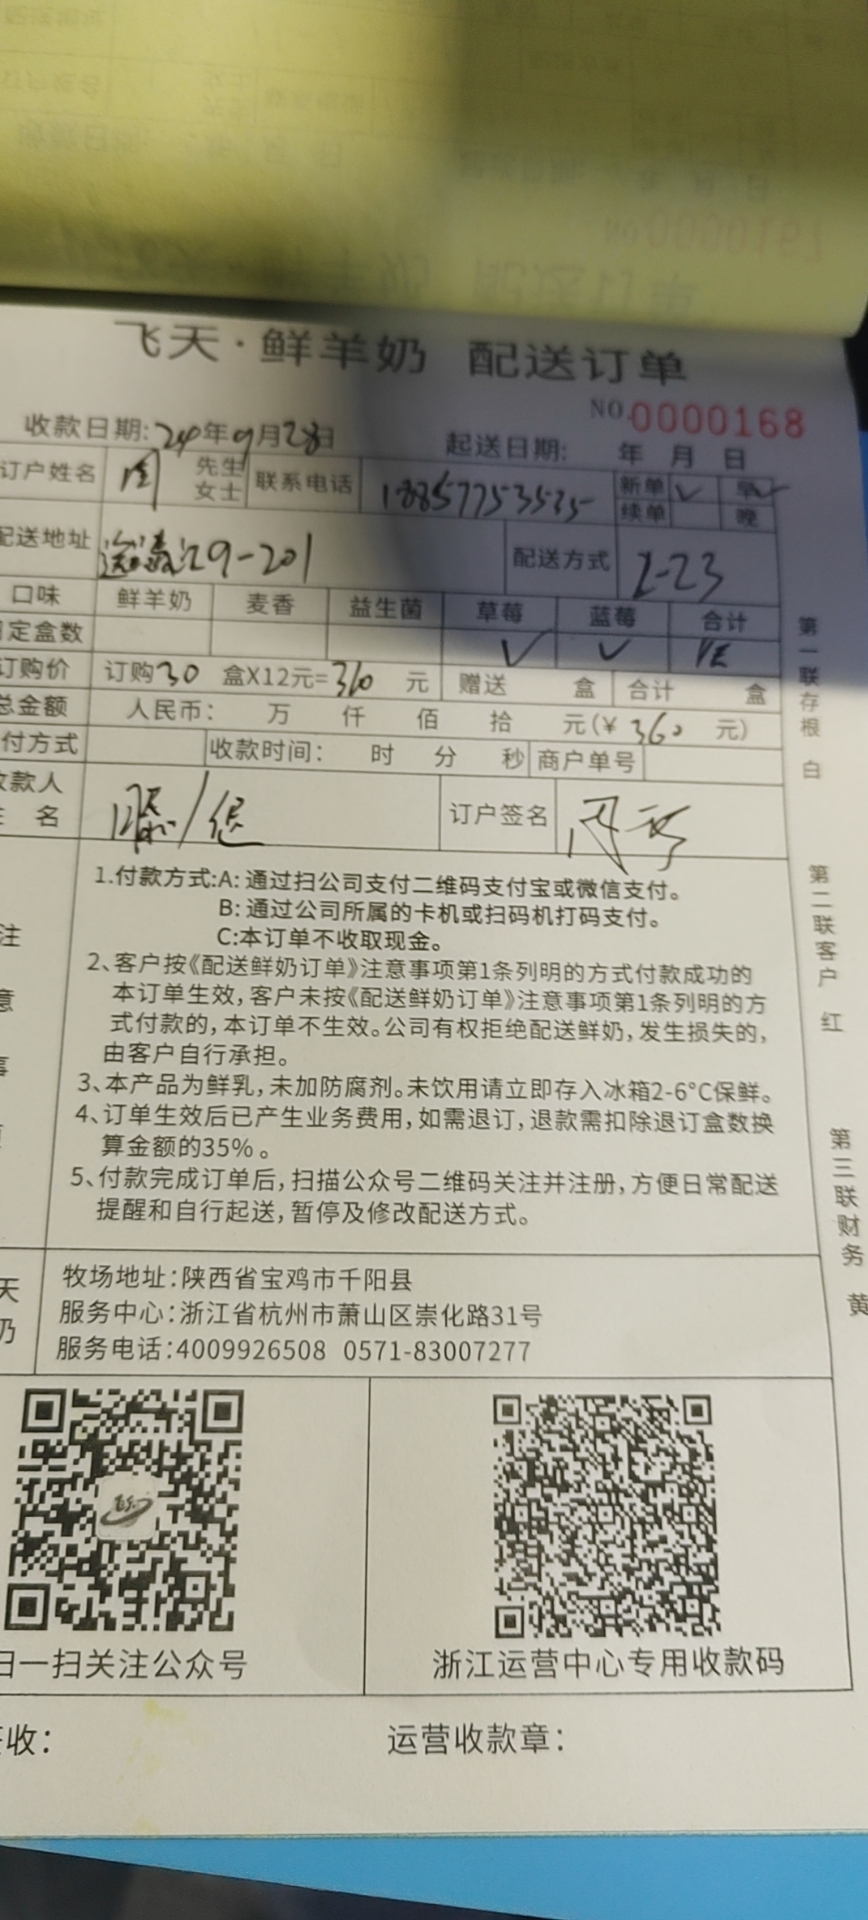 飞天·鲜羊奶 配送订单
NO.0000168
收款日期:24年9月28日 起送日期: 年 月 日
订户姓名 周 先生 女士 联系电话 18857753535 新单 ✓ 早 ✓
续单 晚
配送地址 29-201 配送方式 2-23
口味 鲜羊奶 麦香 益生菌 草莓 蓝莓 合计
定盒数 ✓ ✓
订购价 订购30 盒X12元=360 元 赠送 盒 合计 盒
总金额 人民币: 万 仟 佰 拾 元(¥ 360 元)
付方式 收款时间: 时 分 秒 商户单号
收款人
名 订户签名
1.付款方式:A: 通过扫公司支付二维码支付宝或微信支付。
B: 通过公司所属的卡机或扫码机打码支付。
C:本订单不收取现金。
2、客户按《配送鲜奶订单》注意事项第1条列明的方式付款成功的
本订单生效,客户未按《配送鲜奶订单》注意事项第1条列明的方
式付款的,本订单不生效。公司有权拒绝配送鲜奶,发生损失的,
由客户自行承担。
3、本产品为鲜乳,未加防腐剂。未饮用请立即存入冰箱2-6°C保鲜。
4、订单生效后已产生业务费用,如需退订,退款需扣除退订盒数换
算金额的35%。
5、付款完成订单后,扫描公众号二维码关注并注册,方便日常配送
提醒和自行起送,暂停及修改配送方式。
注
意
事
天
奶
牧场地址:陕西省宝鸡市千阳县
服务中心:浙江省杭州市萧山区崇化路31号
服务电话:4009926508 0571-83007277
扫一扫关注公众号
浙江运营中心专用收款码
收: 运营收款章:
第一联存根 白
第二联客户 红
第三联财务 黄